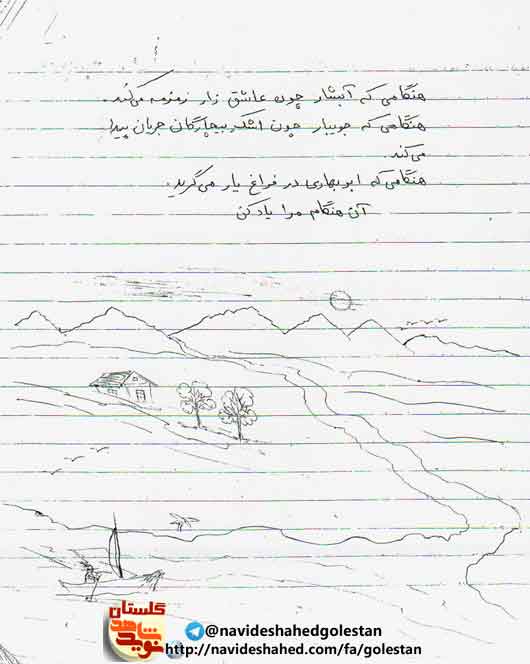 هنگامی که آبشار چون عاشق زار زمزمه می‌کند.
هنگامی که جویبار چون اشک بیچارگان جریان پیدا
می‌کند.
هنگامی که ابر بهاری در فراغ یار می‌گرید.
آن هنگام مرا یاد کن
گلستان
نوید شاهد
@navideshahedgolestan
http://navideshahed.com/fa/golestan